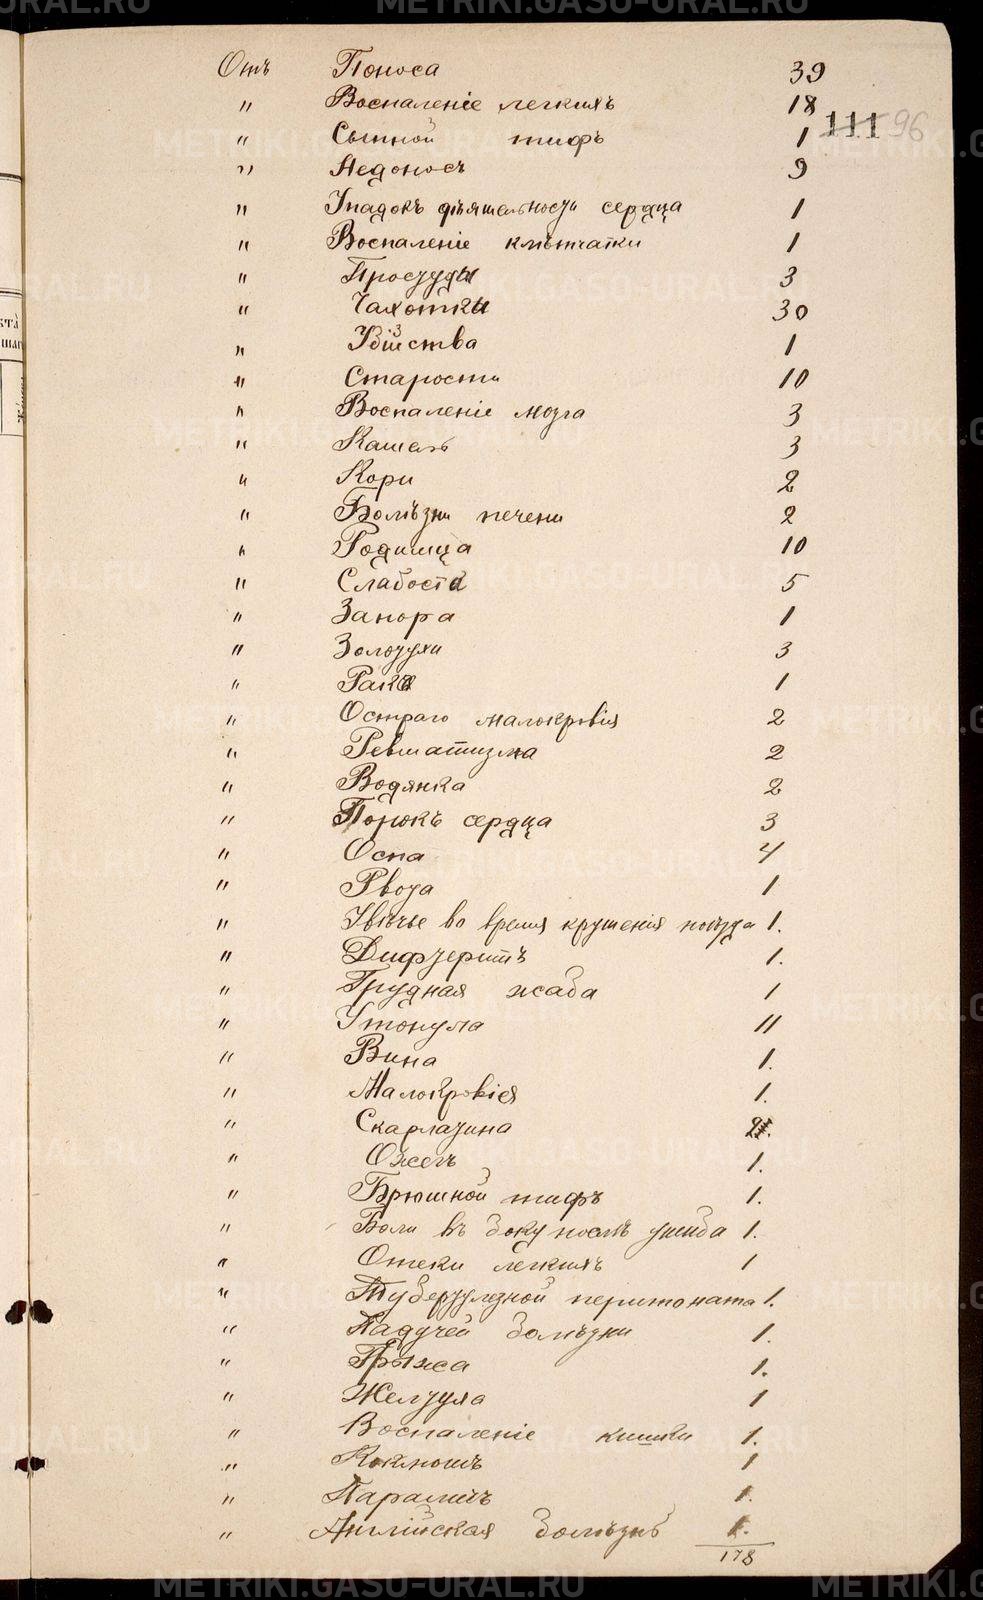 Отъ Поноса 39
" Воспаленіе легкихъ 18
111 96
" Сыпной тифъ 1
" Недоносъ 9
" Упадокъ дѣятельности сердца 1
" Воспаленіе клѣтчатки 1
" Простуды 3
" Чахотки 30
" Убійства 1
" Старости 10
" Воспаленіе мозга 3
" Кашель 3
" Кори 2
" Болѣзни печени 2
" Родимца 10
" Слабости 5
" Запора 1
" Золотухи 3
" Рака 1
" Остраго малокровія 2
" Ревматизма 2
" Водянка 2
" Порокъ сердца 3
" Оспа 4
" Рвота 1
" Увѣчье во время крушенія поѣзда 1.
" Дифтеритъ 1.
" Грудная жаба 1
" Утонула 11
" Вина 1.
" Малокровія 1.
" Скарлатина
" Ожегъ 1.
" Брюшной тифъ 1.
" Боли въ боку послѣ ушиба 1.
" Отеки легкихъ 1
" Туберкулезной перитоната 1.
" Падучей болѣзни 1.
" Грыжа 1.
" Желтуха 1
" Воспаленіе кишки 1.
" Коклюшъ 1
" Параличъ 1.
" Англійская болѣзнь 1.
178
METRIKI.GASO-URAL.RU